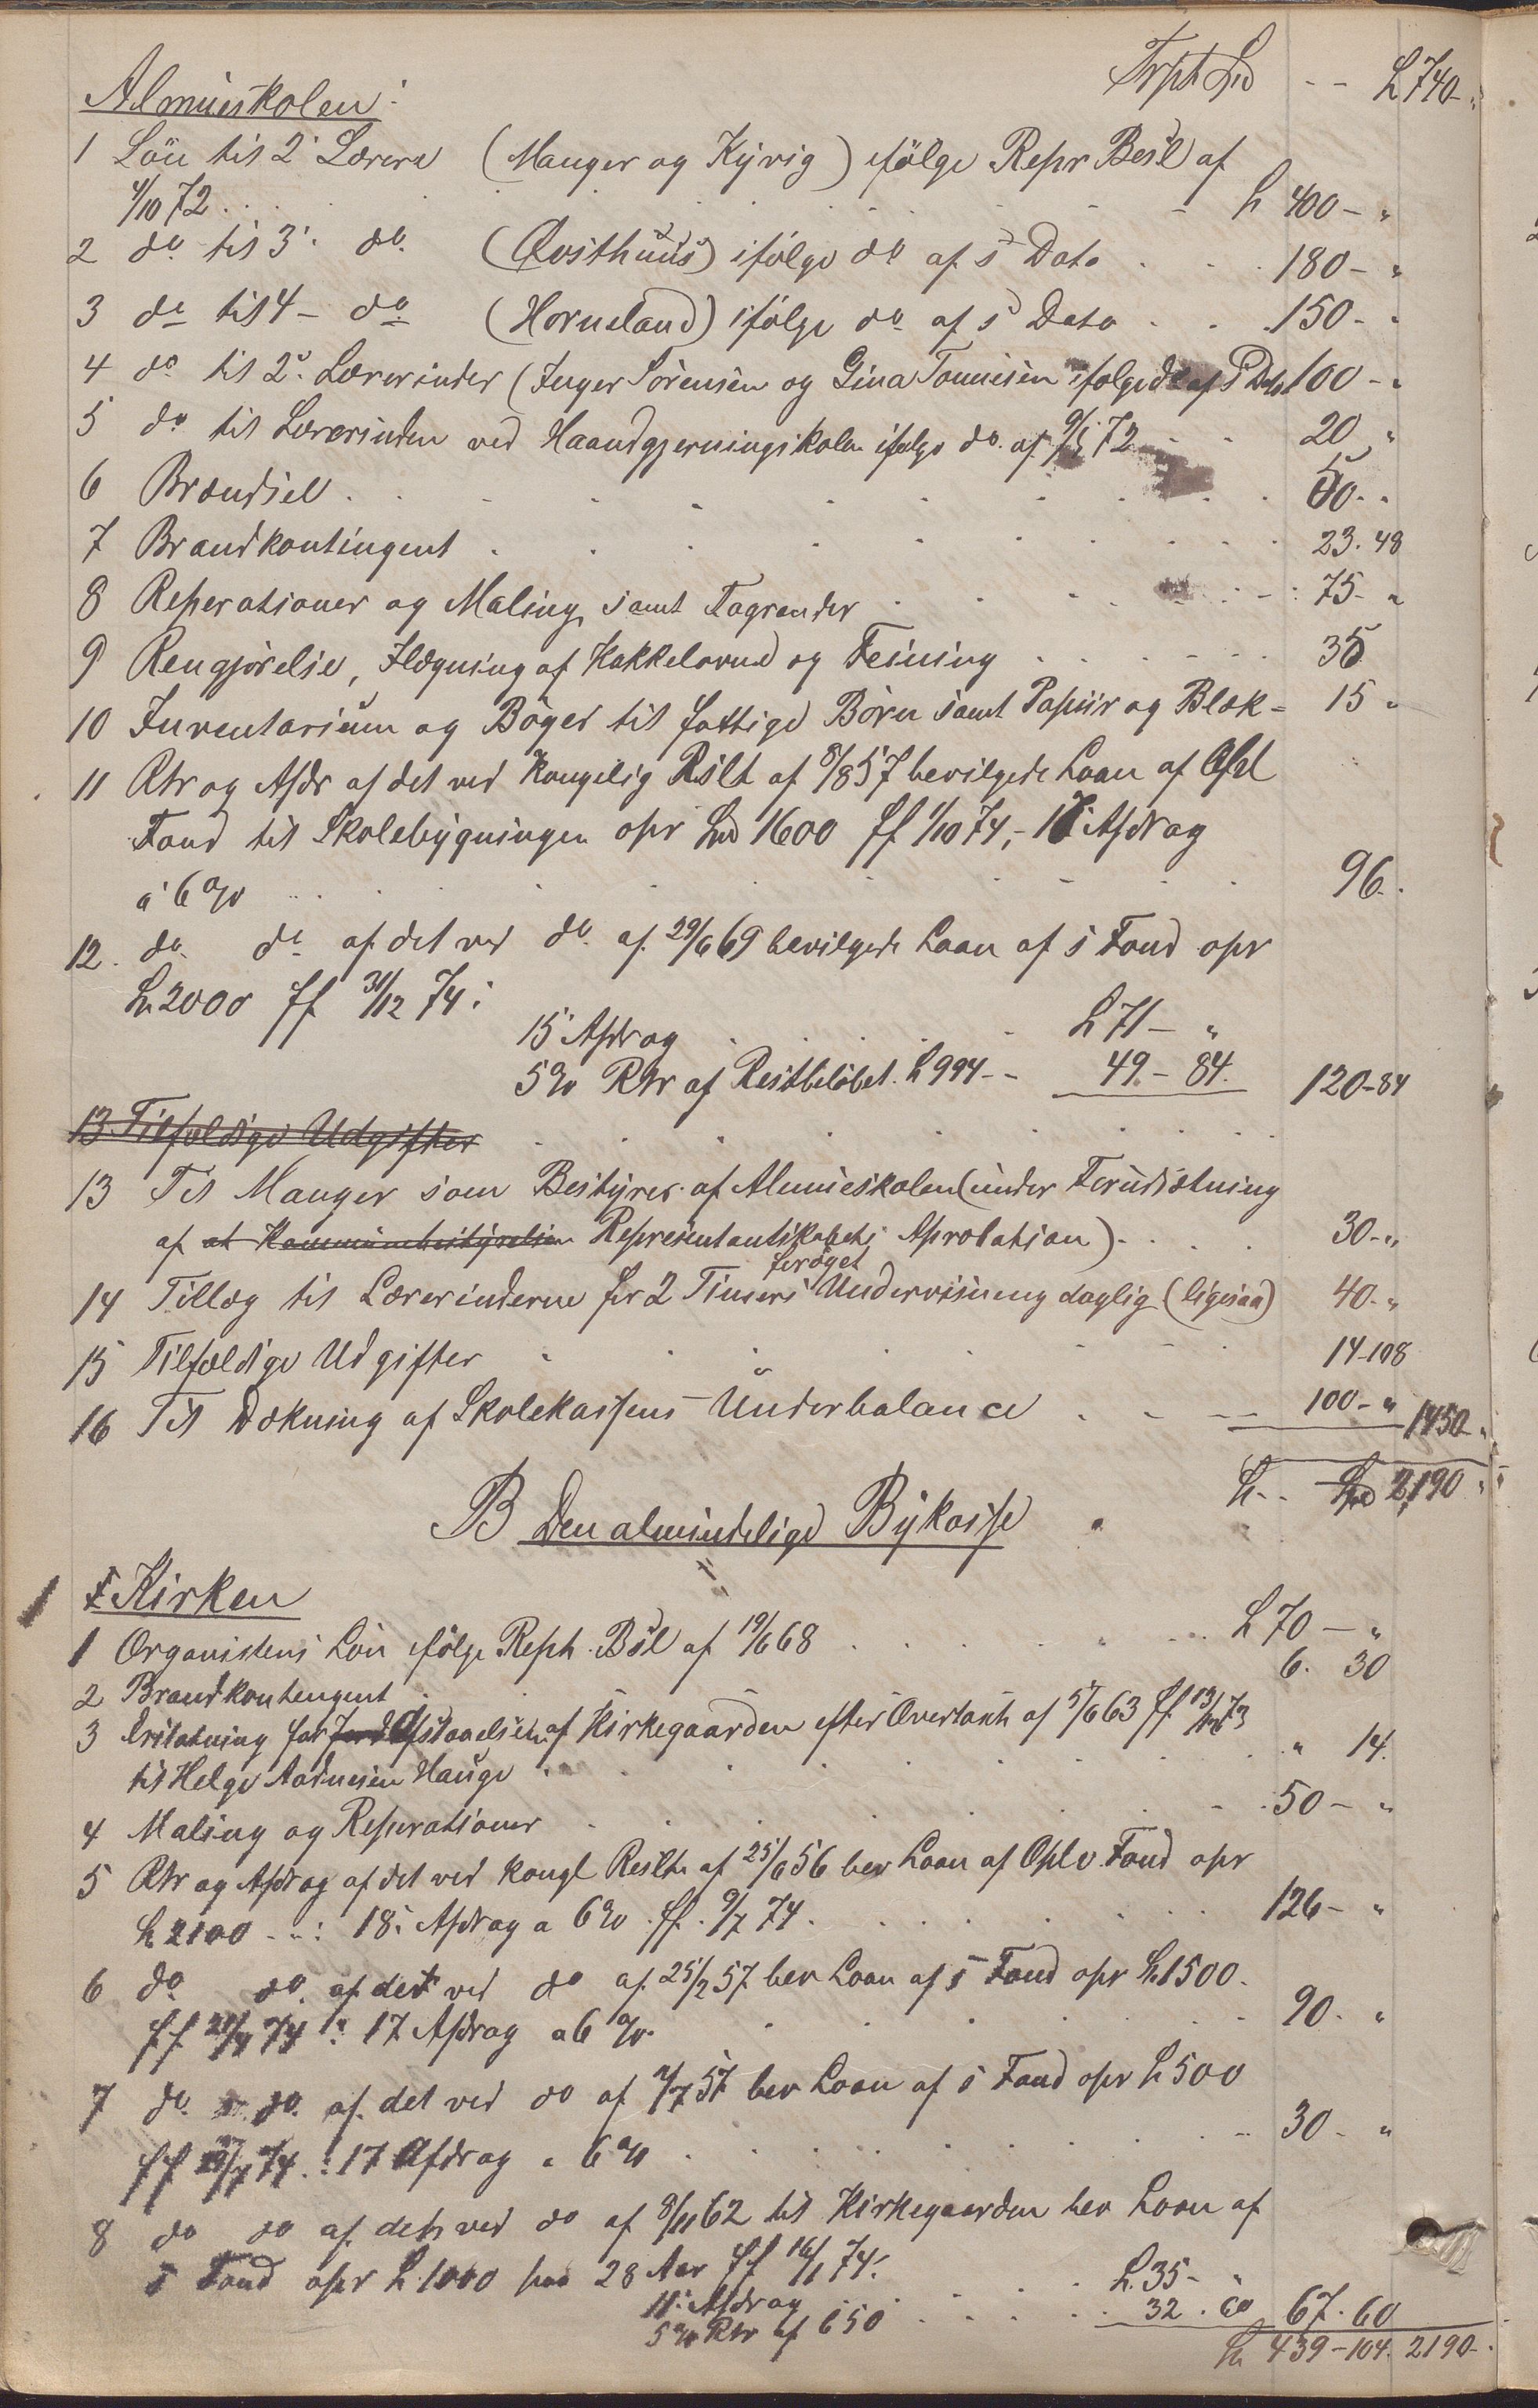 Trpt Spd -- S 740-"
Almueskolen:
1 Lön til 2 Lærere (Manger og Kyvig) ifölge Repr Besl af
4/10 72 . . . S 400-"
2 do til 3' do (Qvisthuus) ifölge do af s Dato . . . 180-"
3 do til 4- do (Horneland) ifölge do af s Dato . . 150-"
4 do til 2. Lærerinder (Inger Sörensen og Gina Tonnisen ifölge do af s Dato 100-"
5 do til Lærerinden ved Haandgjerningskolen ifölge do. af 9/5 72 - - 20 "
6 Brændsel . . . 50-"
7 Brandkontingent . . . 23. 48
8 Reperationer og Maling, samt Tagrender . . . 75-"
9 Rengjörelse, Ilægning af Kakkelovne og Feining . . . 35
10 Inventarium og Böger til fattige Börn samt Papiir og Blæk - 15 "
11 Rtr og Afdr af det ved Kongelig Rslt af 8/8 57 bevilgede Laan af Opl
Fond til Skolebygningen opr Spd 1600 ff 1/10 74,- 17 Afdrag
á 6 % . . . 96.
12. do do af det ved do af 29/6 69 bevilgede Laan af s Fond opr
S 2000 ff 31/12 74:
15 Afdrag . . . S 71- "
5 % Rtr af Restbelöbet S 994 - - 49 - 84. 120-84
13 Tilfældige Udgifter
13 Til Manger som Bestyrer af Almueskolen (under Forudsætning
af at Kommunebestyrelsen Representantskabets Aprobation) . . . 30-"
foröget
14 Tillæg til Lærerinderne for 2 Timers Undervisning daglig (ligesaa) 40-"
15 Tilfældige Udgifter . . . 14-108
16 Til Dækning af Skolekassens Underbalance . . . 100-" 1450-"
S-- Spd 2190 "
B Den almindelige Bykasse
1 I Kirken
1 Organistens Lön ifölge Reph. Bsl af 19/6 68 . . . S 70-"
2 Brandkontengent 6. 30
3 Erstatning for Jord Afstaaelsen af Kirkegaarden efter Overtaxt af 5/6 63 ff. 13/12 73
til Helge Aadnesen Hauge . . . " 14.
4 Maling og Reperationer . . . 50-"
5 Rtr og Afdrag af det ved kongl Reslt af 25/6 56 bev Laan af Oplv. Fond opr
S 2100 -": 18: Afdrag a 6 % ff. 9/7 74 . . . 126-"
6 do do. af det ved do af 25/2 57 bev Laan af s Fond opr S. 1500.
ff 21/4 74: 17 Afdrag a 6 %. . . . 90. "
7 do. do. af det ved do af 4/7 57 bev Laan af s Fond opr S 500
ff 28/7 74.: 17 Afdrag a 6 % . . . 30-"
8 do do af det ved do af 8/11 62 til Kirkegaarden bev Laan af
s Fond opr S. 1000 paa 28 Aar ff 16/1 74:
11: Afdrag . . . S. 35- "
5 % Rtr af 650 . . . 32. 60 67. 60
S 439-104. 2190-"